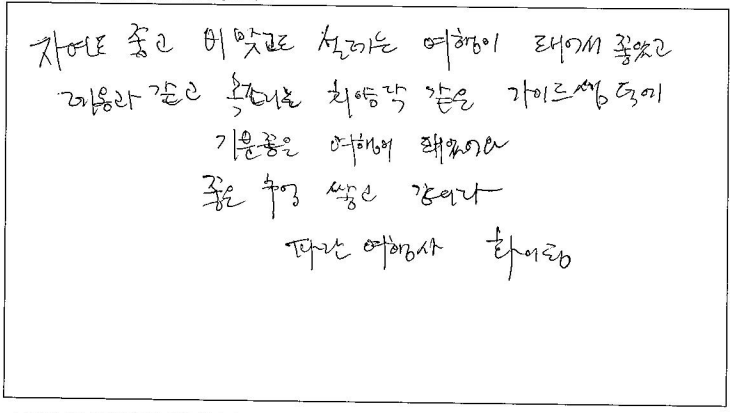 자연도 좋고 비맞고도 설레는 여행이 돼어서 좋았고
같고 목소리는 최양락 같은 가이드쌤 덕에
기분좋은 여행이 돼었어요
좋은 추억 쌓고 갑니다
파란 여행사 화이팅